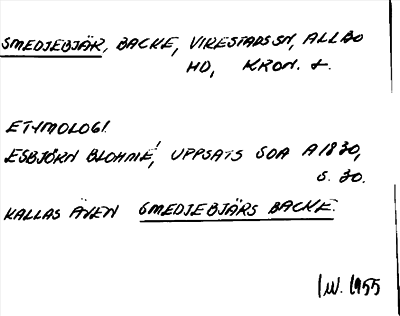 SMEDJEBJÄR, BACKE, VIRESTADS SN, ALLBO
HD, KRON. L.
ETYMOLOGI.
ESBJÖRN BLOHMÉ, UPPSATS SOA A1830,
S. 30.
KALLAS ÄVEN SMEDJEBJÄRS BACKE.
1955